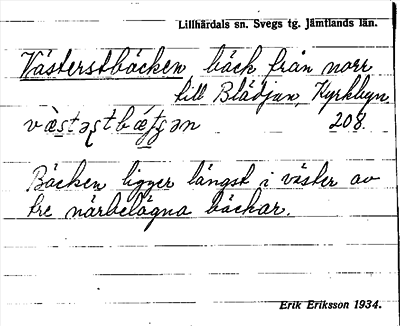 Lillhärdals sn. Svegs tg. Jämtlands län.
Västerstbäcken bäck från norr
till Blädjan, Kyrkbyn.
208.
Bäcken ligger längst i väster av
tre närbelägna bäckar.
Erik Eriksson 1934.